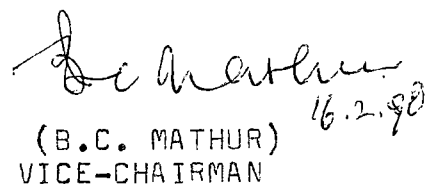 B C Mathur
16.2.90
(B.C. MATHUR)
VICE-CHAIRMAN